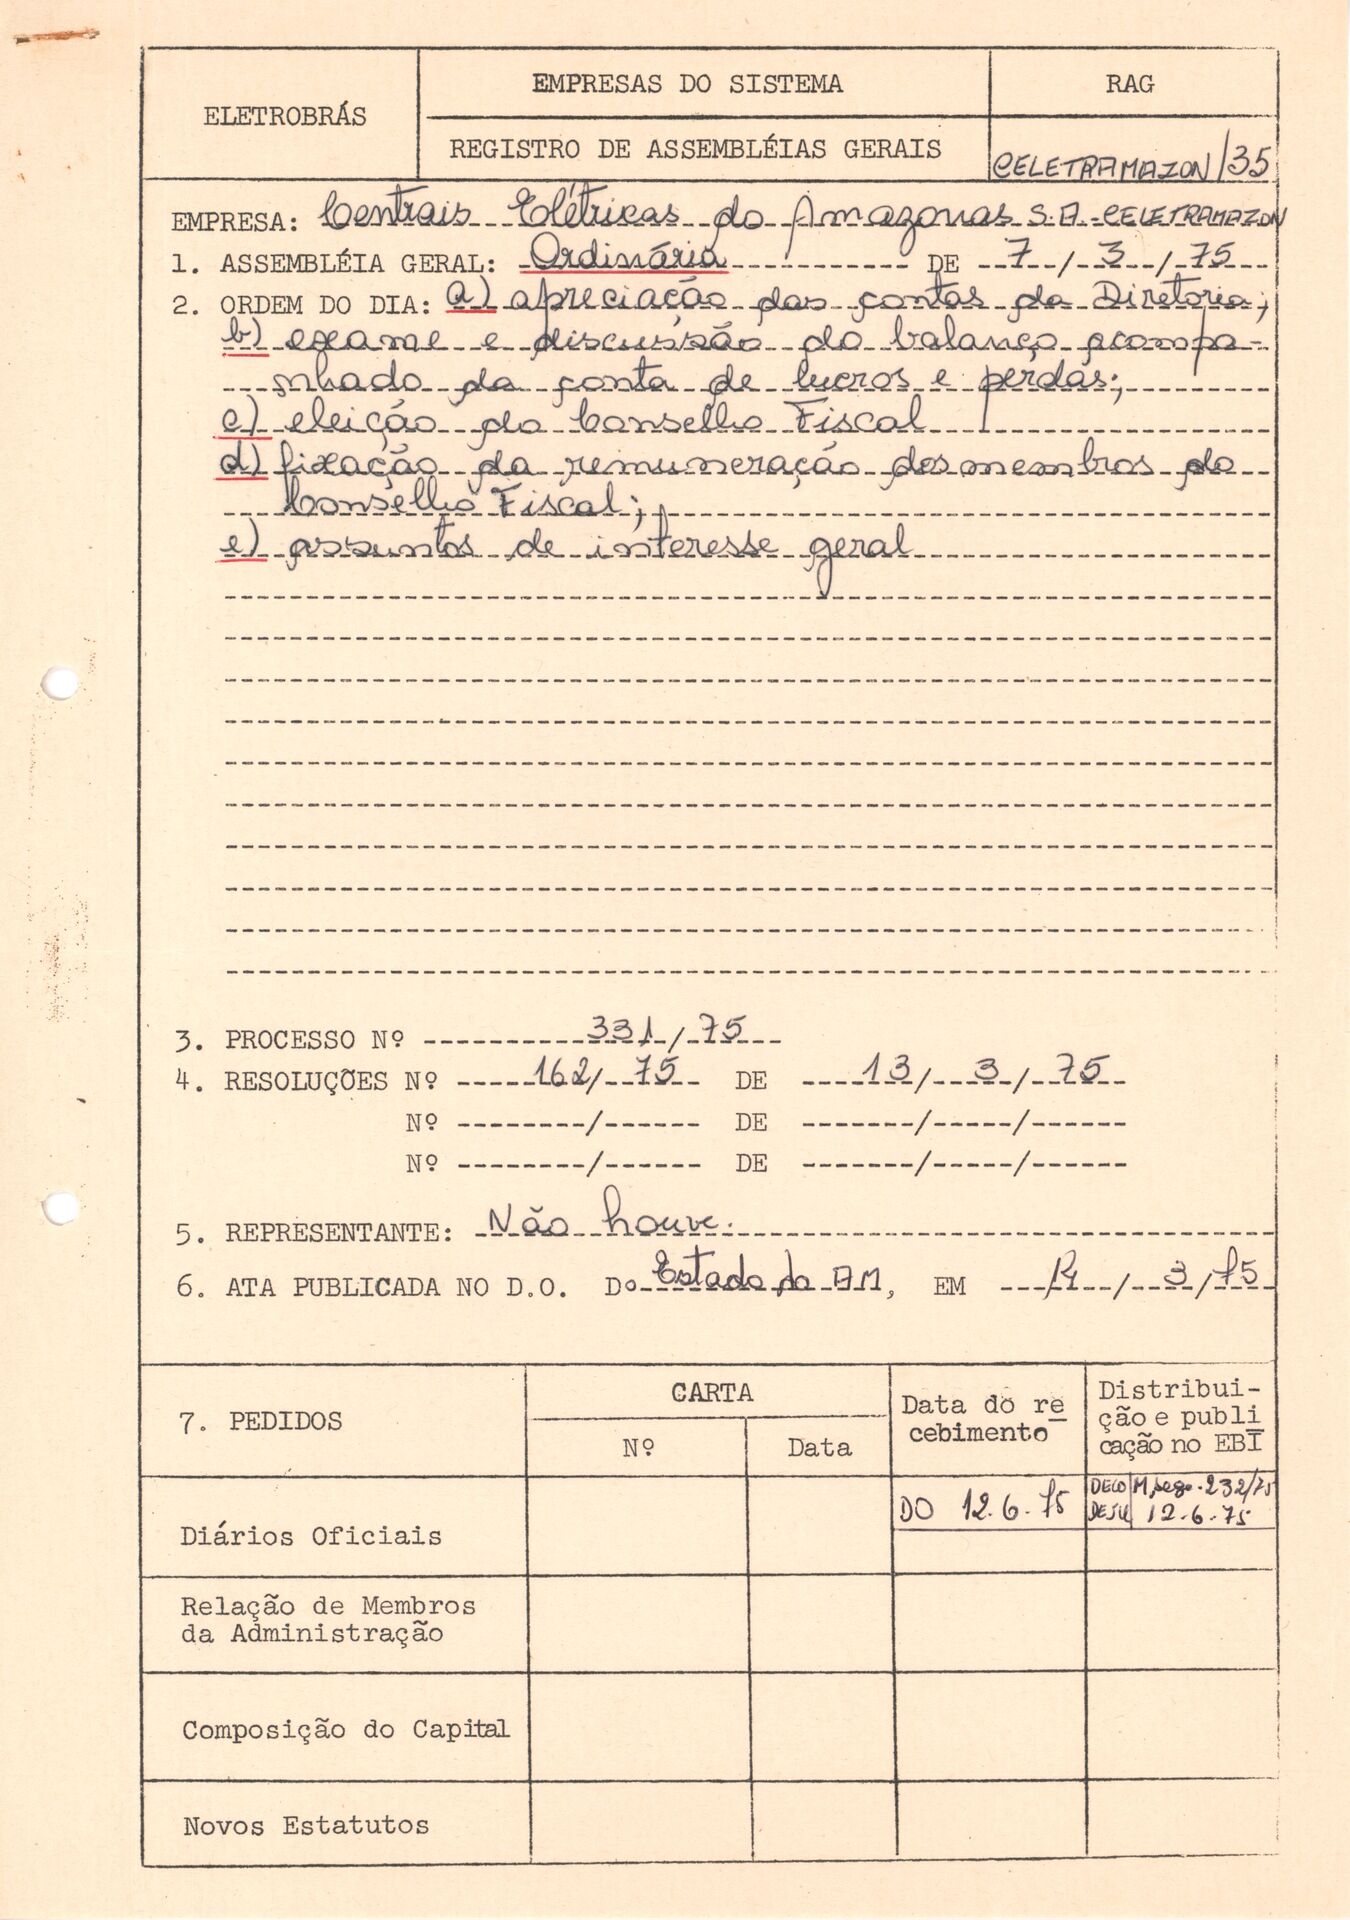 ELETROBRÁS
EMPRESAS DO SISTEMA
REGISTRO DE ASSEMBLÉIAS GERAIS
RAG
CELETRAMAZON/35
EMPRESA: Centrais Elétricas do Amazonas S.A. CELETRAMAZON
1. ASSEMBLÉIA GERAL: Ordinária DE 7/3/75
2. ORDEM DO DIA: a) apreciação das contas da Diretoria;
b) exame e discussão do balanço acompa-
nhado da conta de lucros e perdas;
c) eleição do Conselho Fiscal
d) fixação da remuneração dos membros do
Conselho Fiscal;
e) assuntos de interesse geral
3. PROCESSO Nº 331/75
4. RESOLUÇÕES Nº 162/75 DE 13/3/75
Nº / DE / /
Nº / DE / /
5. REPRESENTANTE: Não houve.
6. ATA PUBLICADA NO D.O. Do Estado do AM, EM /3/75
7. PEDIDOS
CARTA
Nº
Data
Data do re
cebimento
Distribui-
ção e publi
cação no EBI
Diários Oficiais
DO 12.6.75
DECO 232/75
DEJU 12.6.75
Relação de Membros
da Administração
Composição do Capital
Novos Estatutos